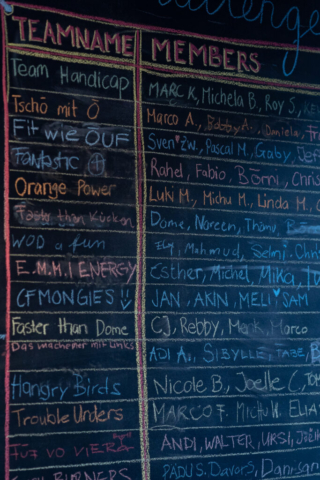 Challenge
TEAMNAME MEMBERS
Team Handicap MARC K, Michela B, Roy S,
Tschö mit Ö Marco A., Bobby A., Daniela,
Fit wie OUF Sven Z.W., Pascal M, Gaby, Jef
Fantastic Rahel, Fabio, Bömi, Chris
Orange Power Luki M., Michu M, Linda M.,
Faster than Kücken Dome, Noreen, Thanu,
WOD a fun Ely, Mahmud, Selmi, Chri
E.M.H.I ENERGY Esther, Michel, Mika,
CFMONGIES JAN, AKIN, MELI SAM
Faster than Dome CJ, Rebby, Mark, Marco
Das machemer mit Links ADI A., SIBYLLE, TABE,
Hangry Birds Nicole B., Joelle C.,
Trouble Unders MARCO F. Michu W. ELIA
ANDI, WALTER, URSI,
BURNERS PADU S. Davor S.,